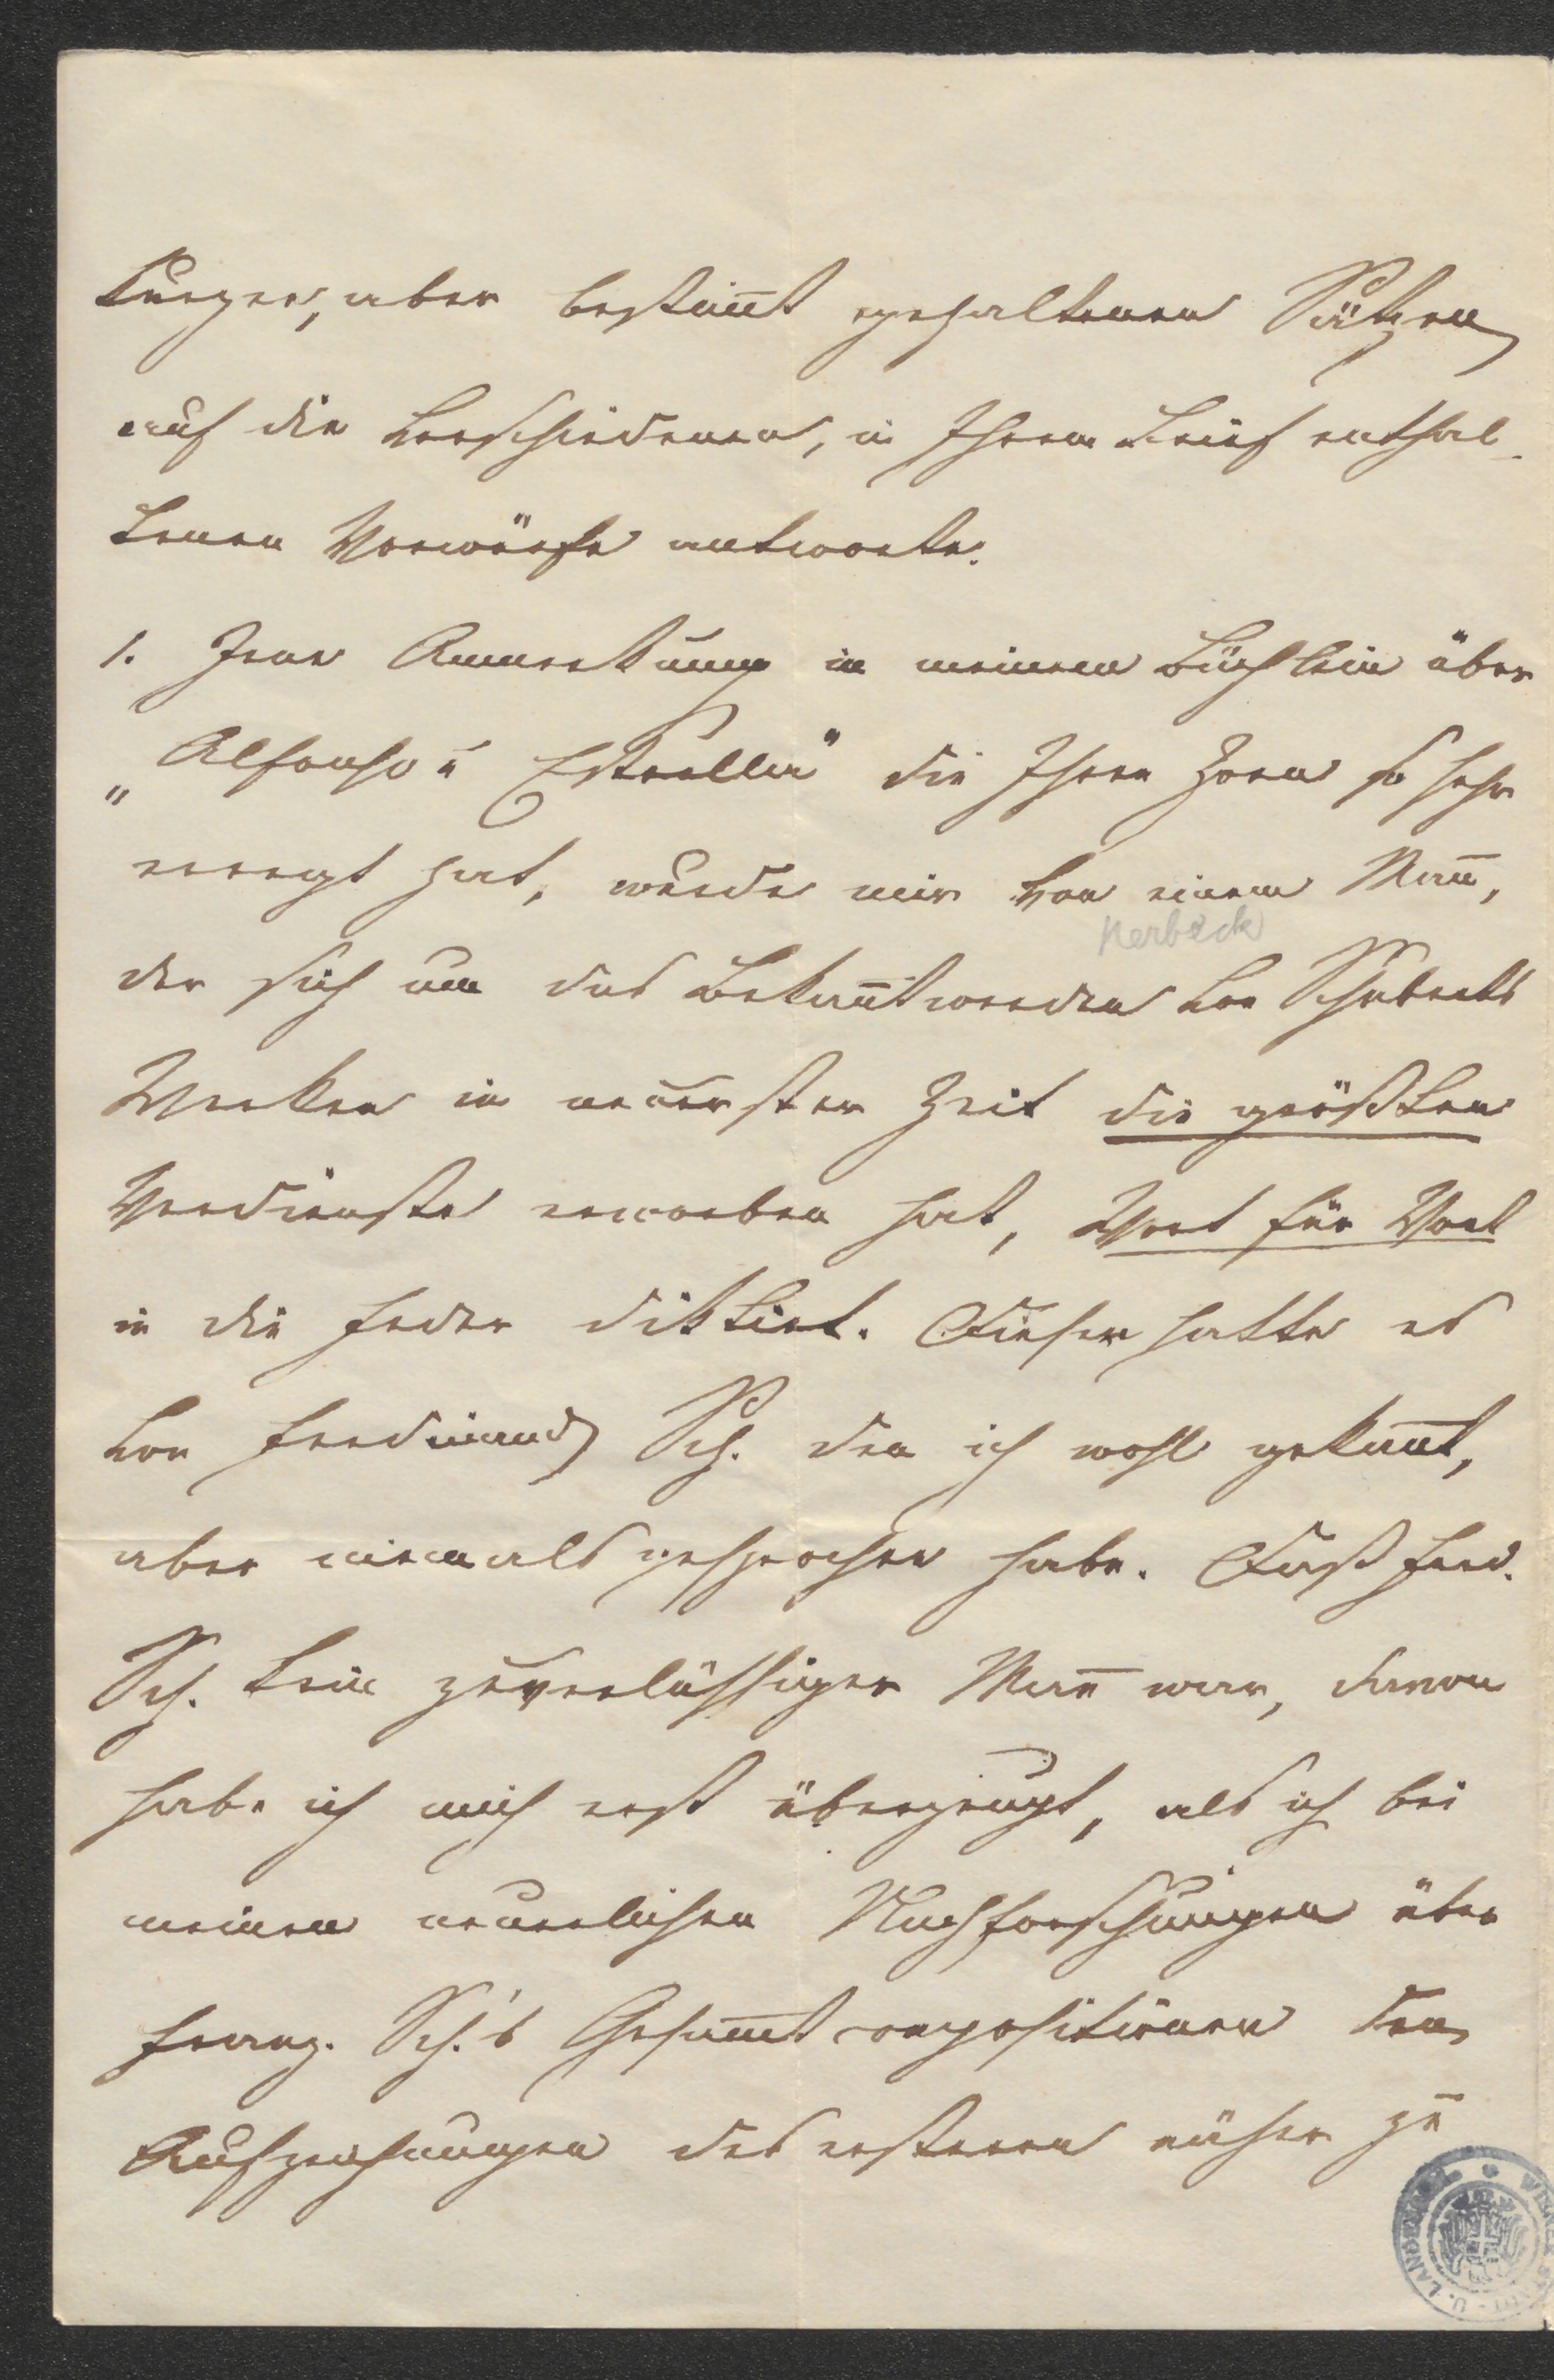 kurzen, aber bestim̅t gehaltenen Sätzen
auf die verschiedenen, in Ihrem Brief enthal-
tenen Vorwürfe antworte.
1. Jene Anmerkung in meinem Büchlein über
„Alfonso u Estrella" die Ihren Zorn so sehr
erregt hat, wurde mir von einem Man̅,
Herbeck
der sich um das Bekan̅twerden von Schuberts
Werken in neuester Zeit die größten
Verdienste erworben hat, Wort für Wort
in die Feder diktirt. Dieser hatte es
von Ferdinand Sch. den ich wohl gekan̅t,
aber niemals gesprochen habe. Daß Ferd.
Sch. kein zuverlässiger Man̅ war, davon
habe ich mich erst überzeugt, als ich bei
meinen neuerlichen Nachforschungen über
Franz. Sch.'s Gesam̅tcompositionen den
Aufzeichnungen des ersteren näher zu
WIENER STADT- U. LANDESBIBL.